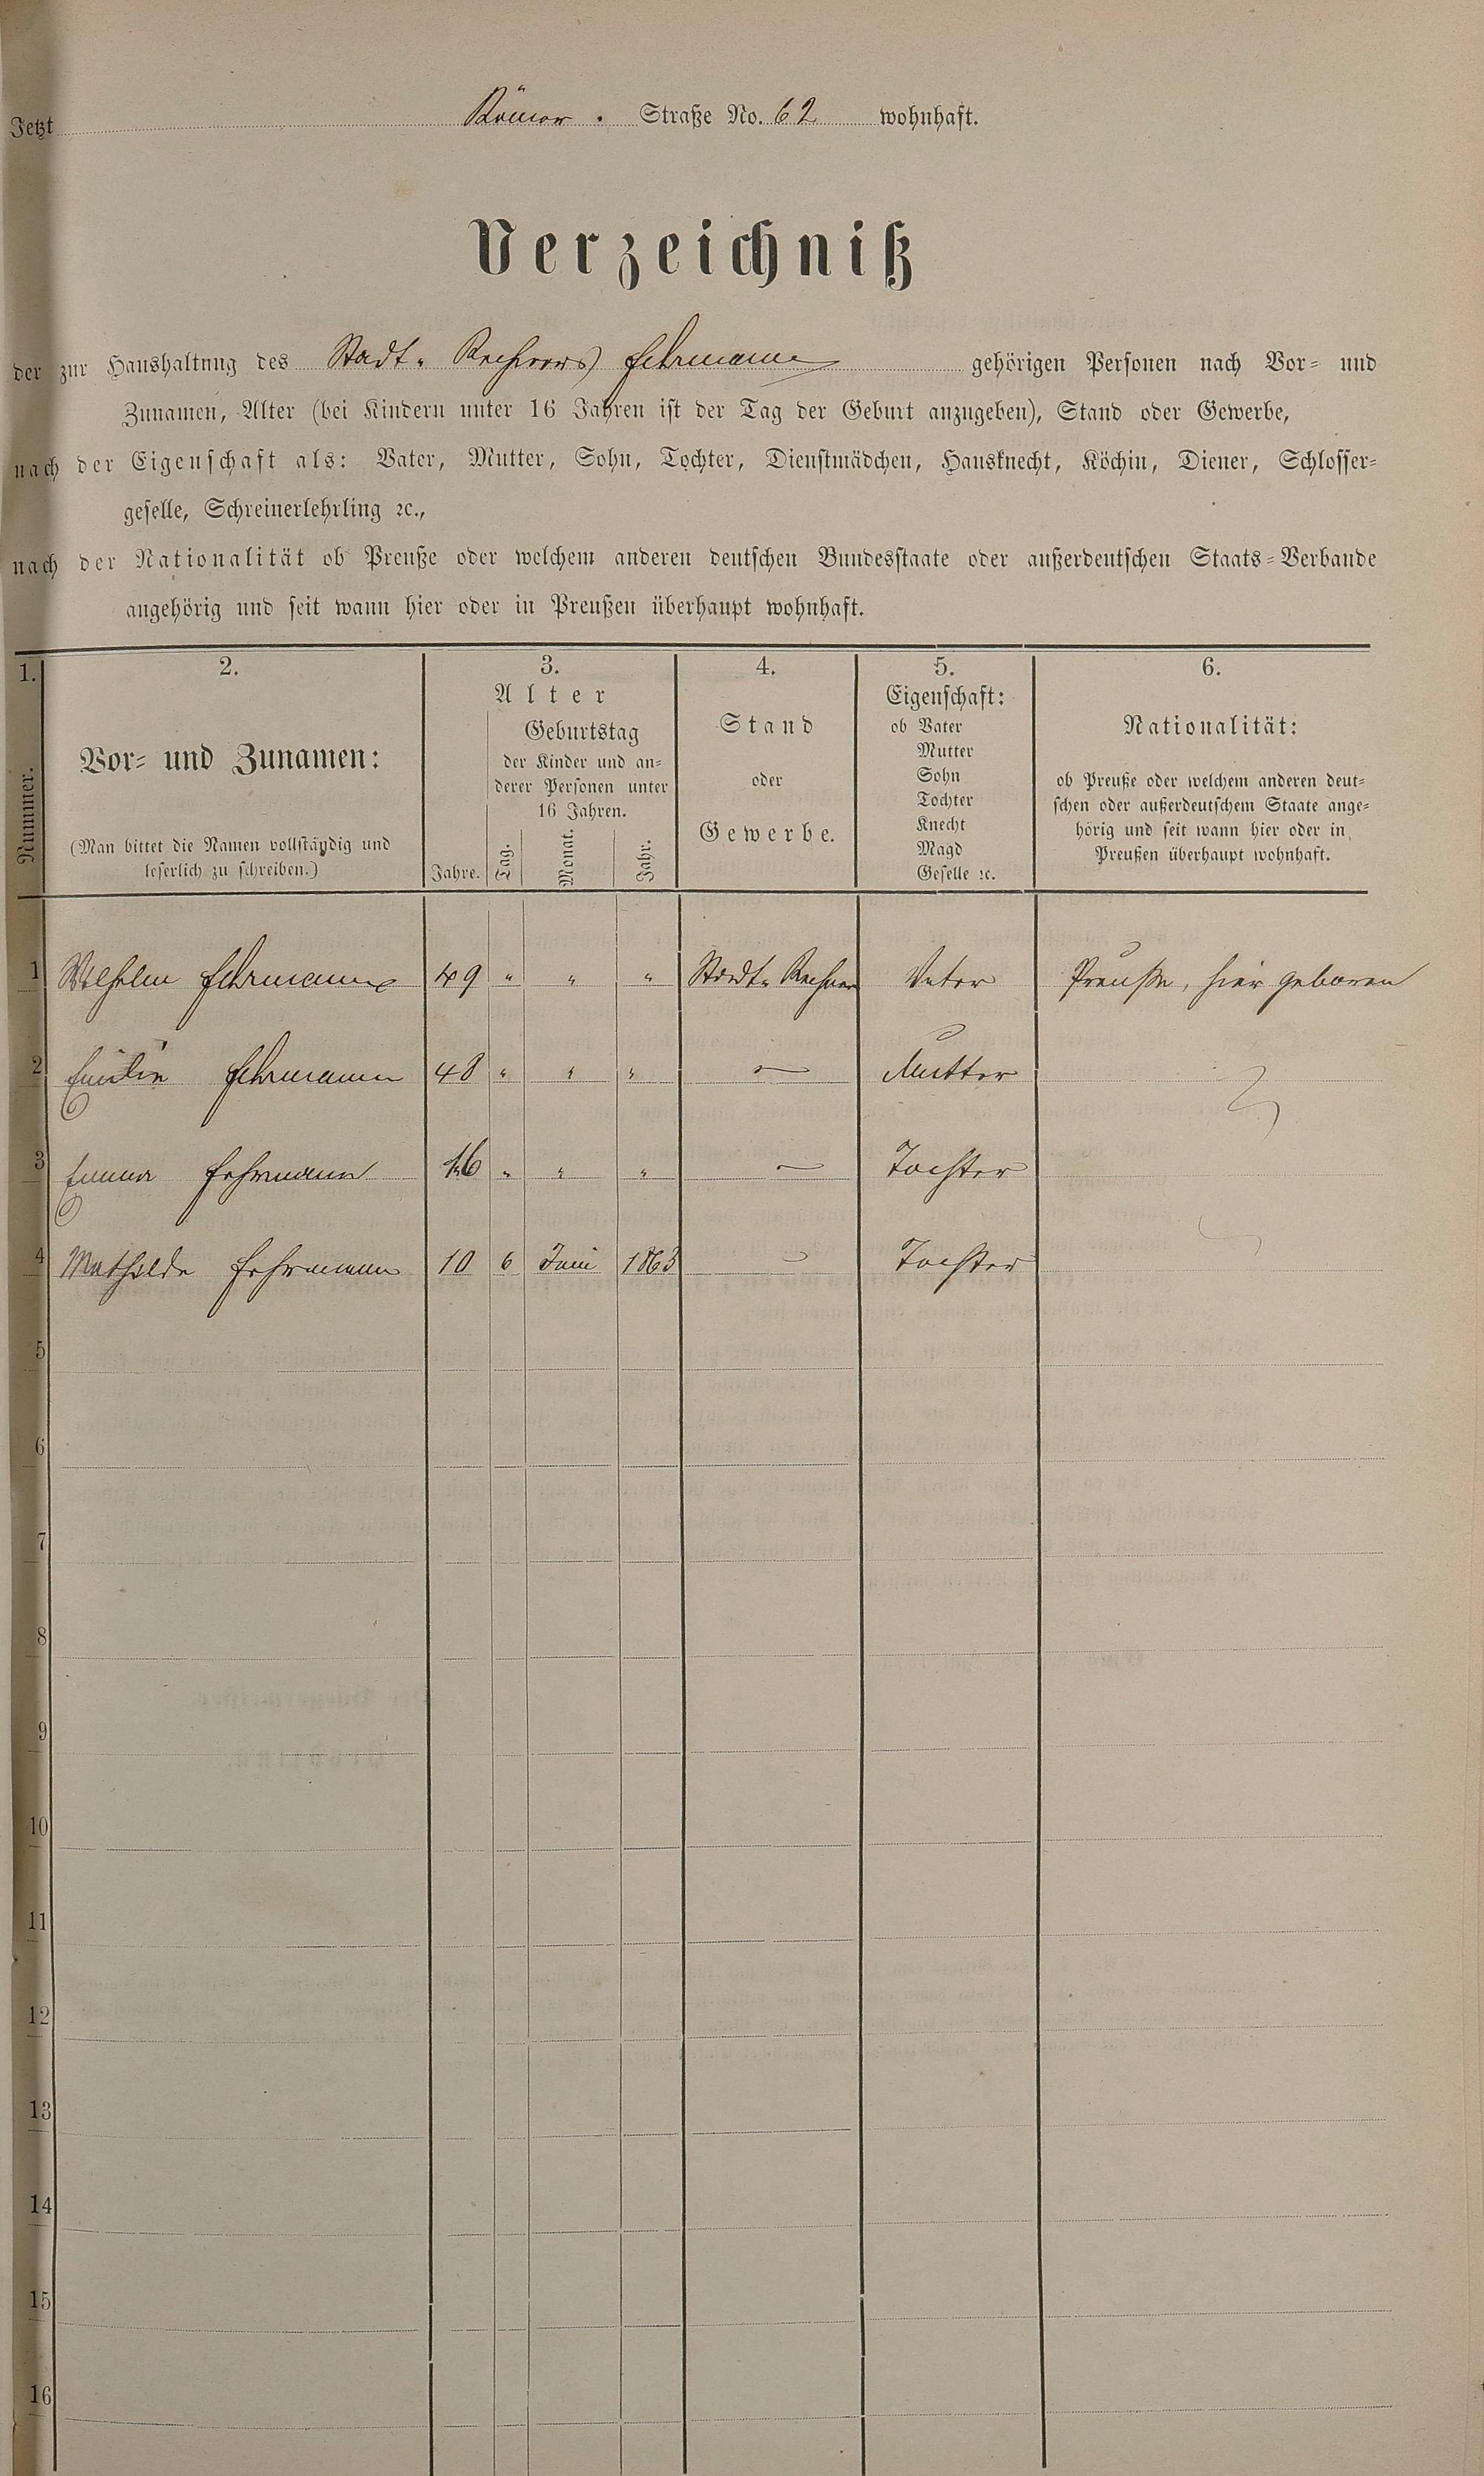 Jetzt Römer . Straße No. 62 wohnhaft.
Verzeichniß
der zur Haushaltung des Stadt-Rechners Fehrmann gehörigen Personen nach Vor- und
Zunamen, Alter (bei Kindern unter 16 Jahren ist der Tag der Geburt anzugeben), Stand oder Gewerbe,
nach der Eigenschaft als: Vater, Mutter, Sohn, Tochter, Dienstmädchen, Hausknecht, Köchin, Diener, Schlosser-
geselle, Schreinerlehrling ꝛc.,
nach der Nationalität ob Preuße oder welchem anderen deutschen Bundesstaate oder außerdeutschen Staats-Verbande
angehörig und seit wann hier oder in Preußen überhaupt wohnhaft.
1. 2. 3. 4. 5. 6.
Nummer.
Vor- und Zunamen:
(Man bittet die Namen vollständig und
leserlich zu schreiben.)
Alter
Jahre.
Geburtstag
der Kinder und an-
derer Personen unter
16 Jahren.
Tag. Monat. Jahr.
Stand
oder
Gewerbe.
Eigenschaft:
ob Vater
Mutter
Sohn
Tochter
Knecht
Magd
Geselle ꝛc.
Nationalität:
ob Preuße oder welchem anderen deut-
schen oder außerdeutschem Staate ange-
hörig und seit wann hier oder in
Preußen überhaupt wohnhaft.
1 Wilhelm Fehrmann 49 " " " Stadt-Rechner Vater Preuße, hier geboren
2 Emilie Fehrmann 48 " " " — Mutter
3 Emma Fehrmann 16 " " " — Tochter
4 Mathilde Fehrmann 10 6 Juni 1863 — Tochter
5
6
7
8
9
10
11
12
13
14
15
16